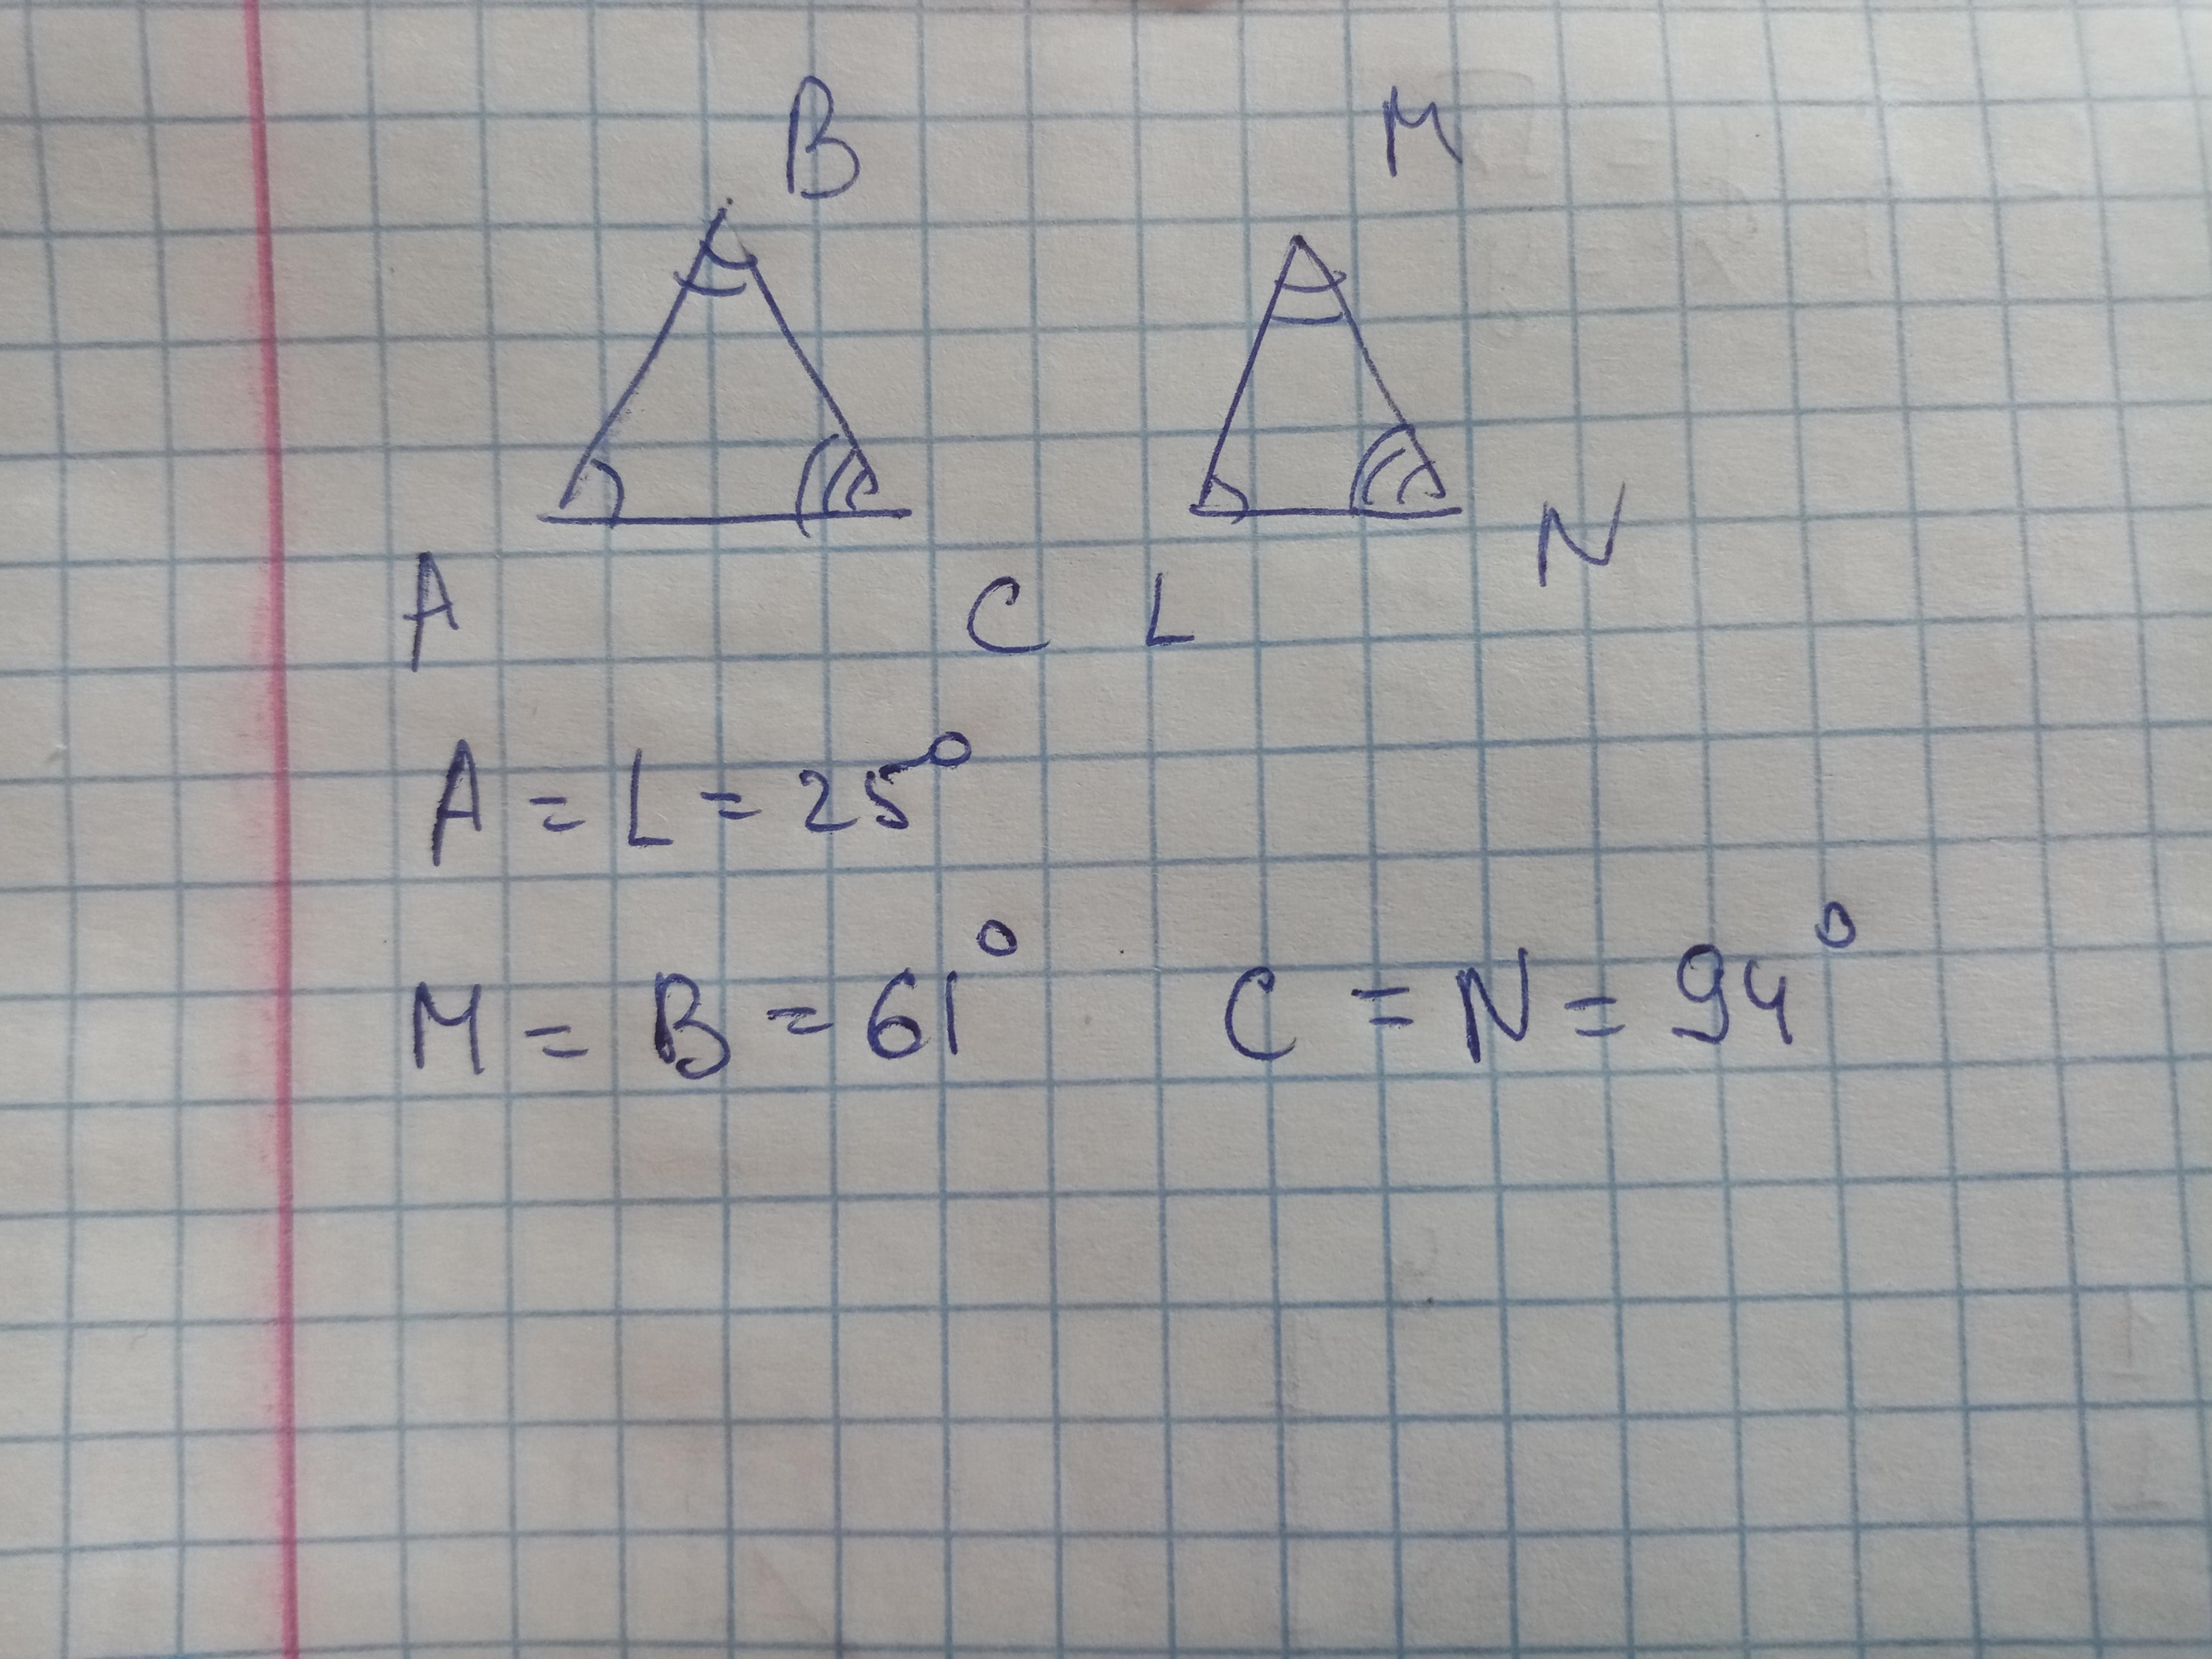 B M
A C L N
A = L = 25°
M = B = 61° C = N = 94°